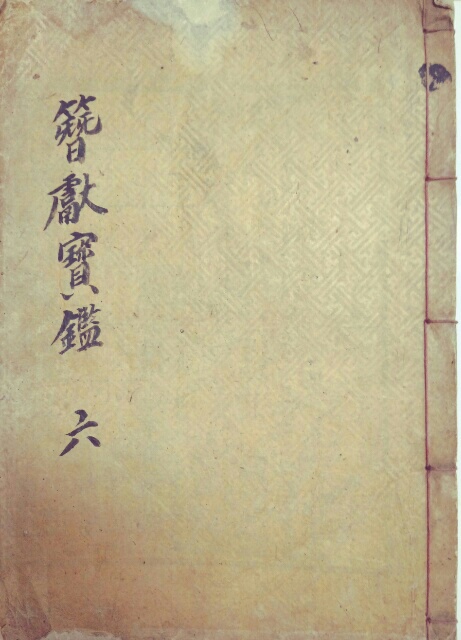 簪獻寶鑑 六